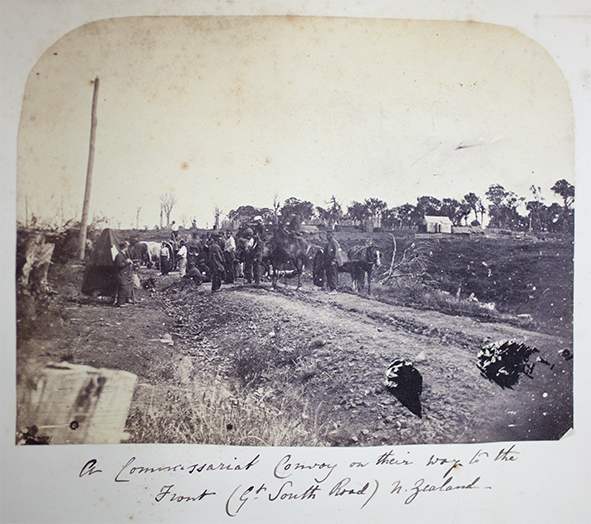 A Commissariat Convoy on their way to the
Front (Gt South Road) N. Zealand_